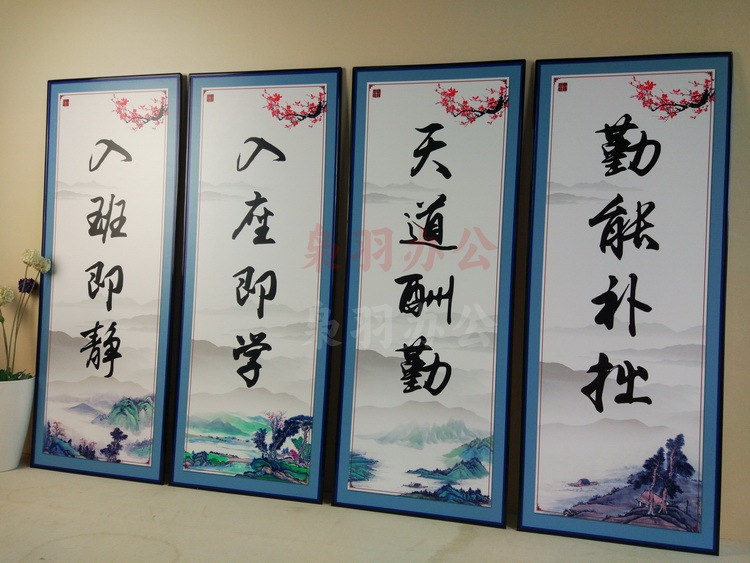 入班即静
入座即学
天道酬勤
勤能补拙
枭羽办公
枭羽办公